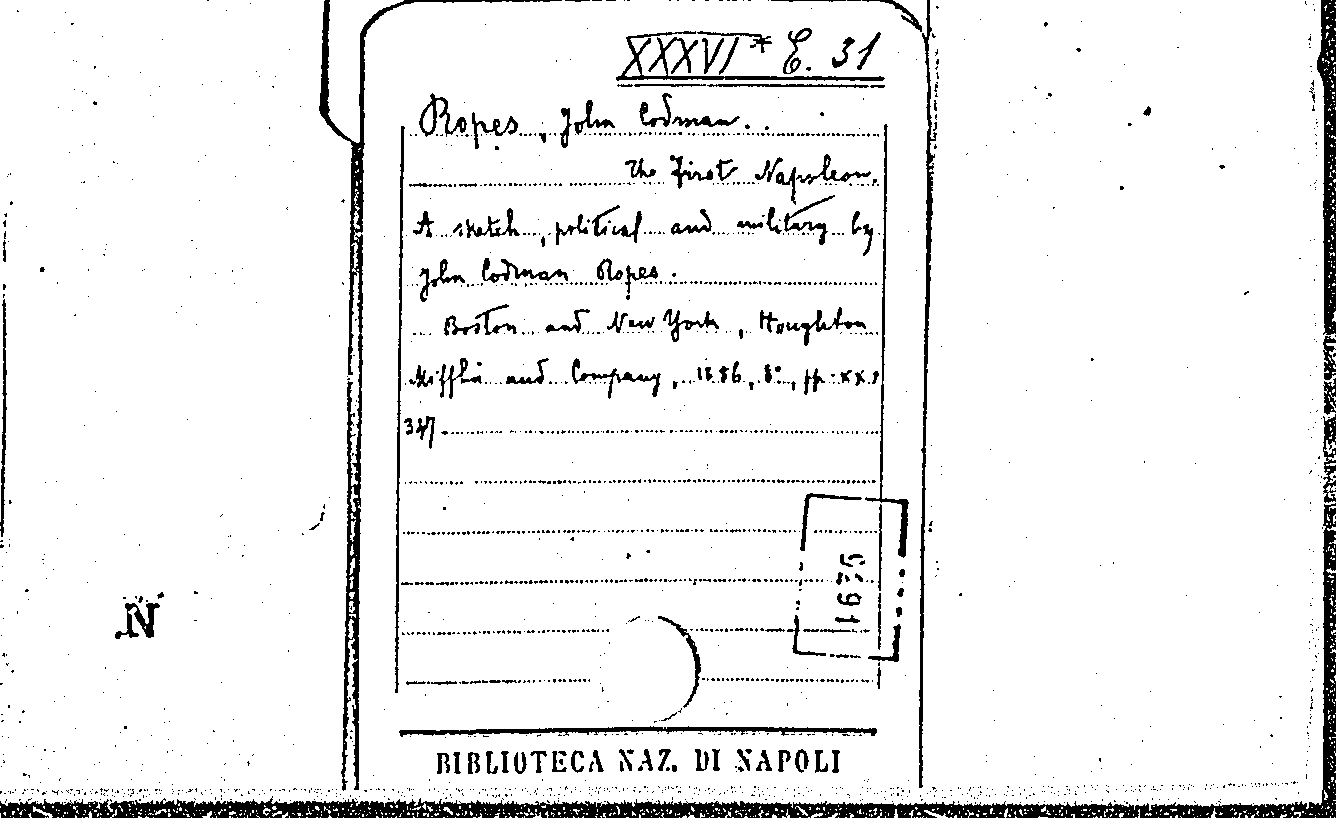 XXXVI* E. 31
Ropes, John Codman.
The First Napoleon.
A sketch, political and military by
John Codman Ropes.
Boston and New York, Houghton
Mifflin and Company, 1886, 8°, pp. xx,
347
BIBLIOTECA NAZ. DI NAPOLI
N